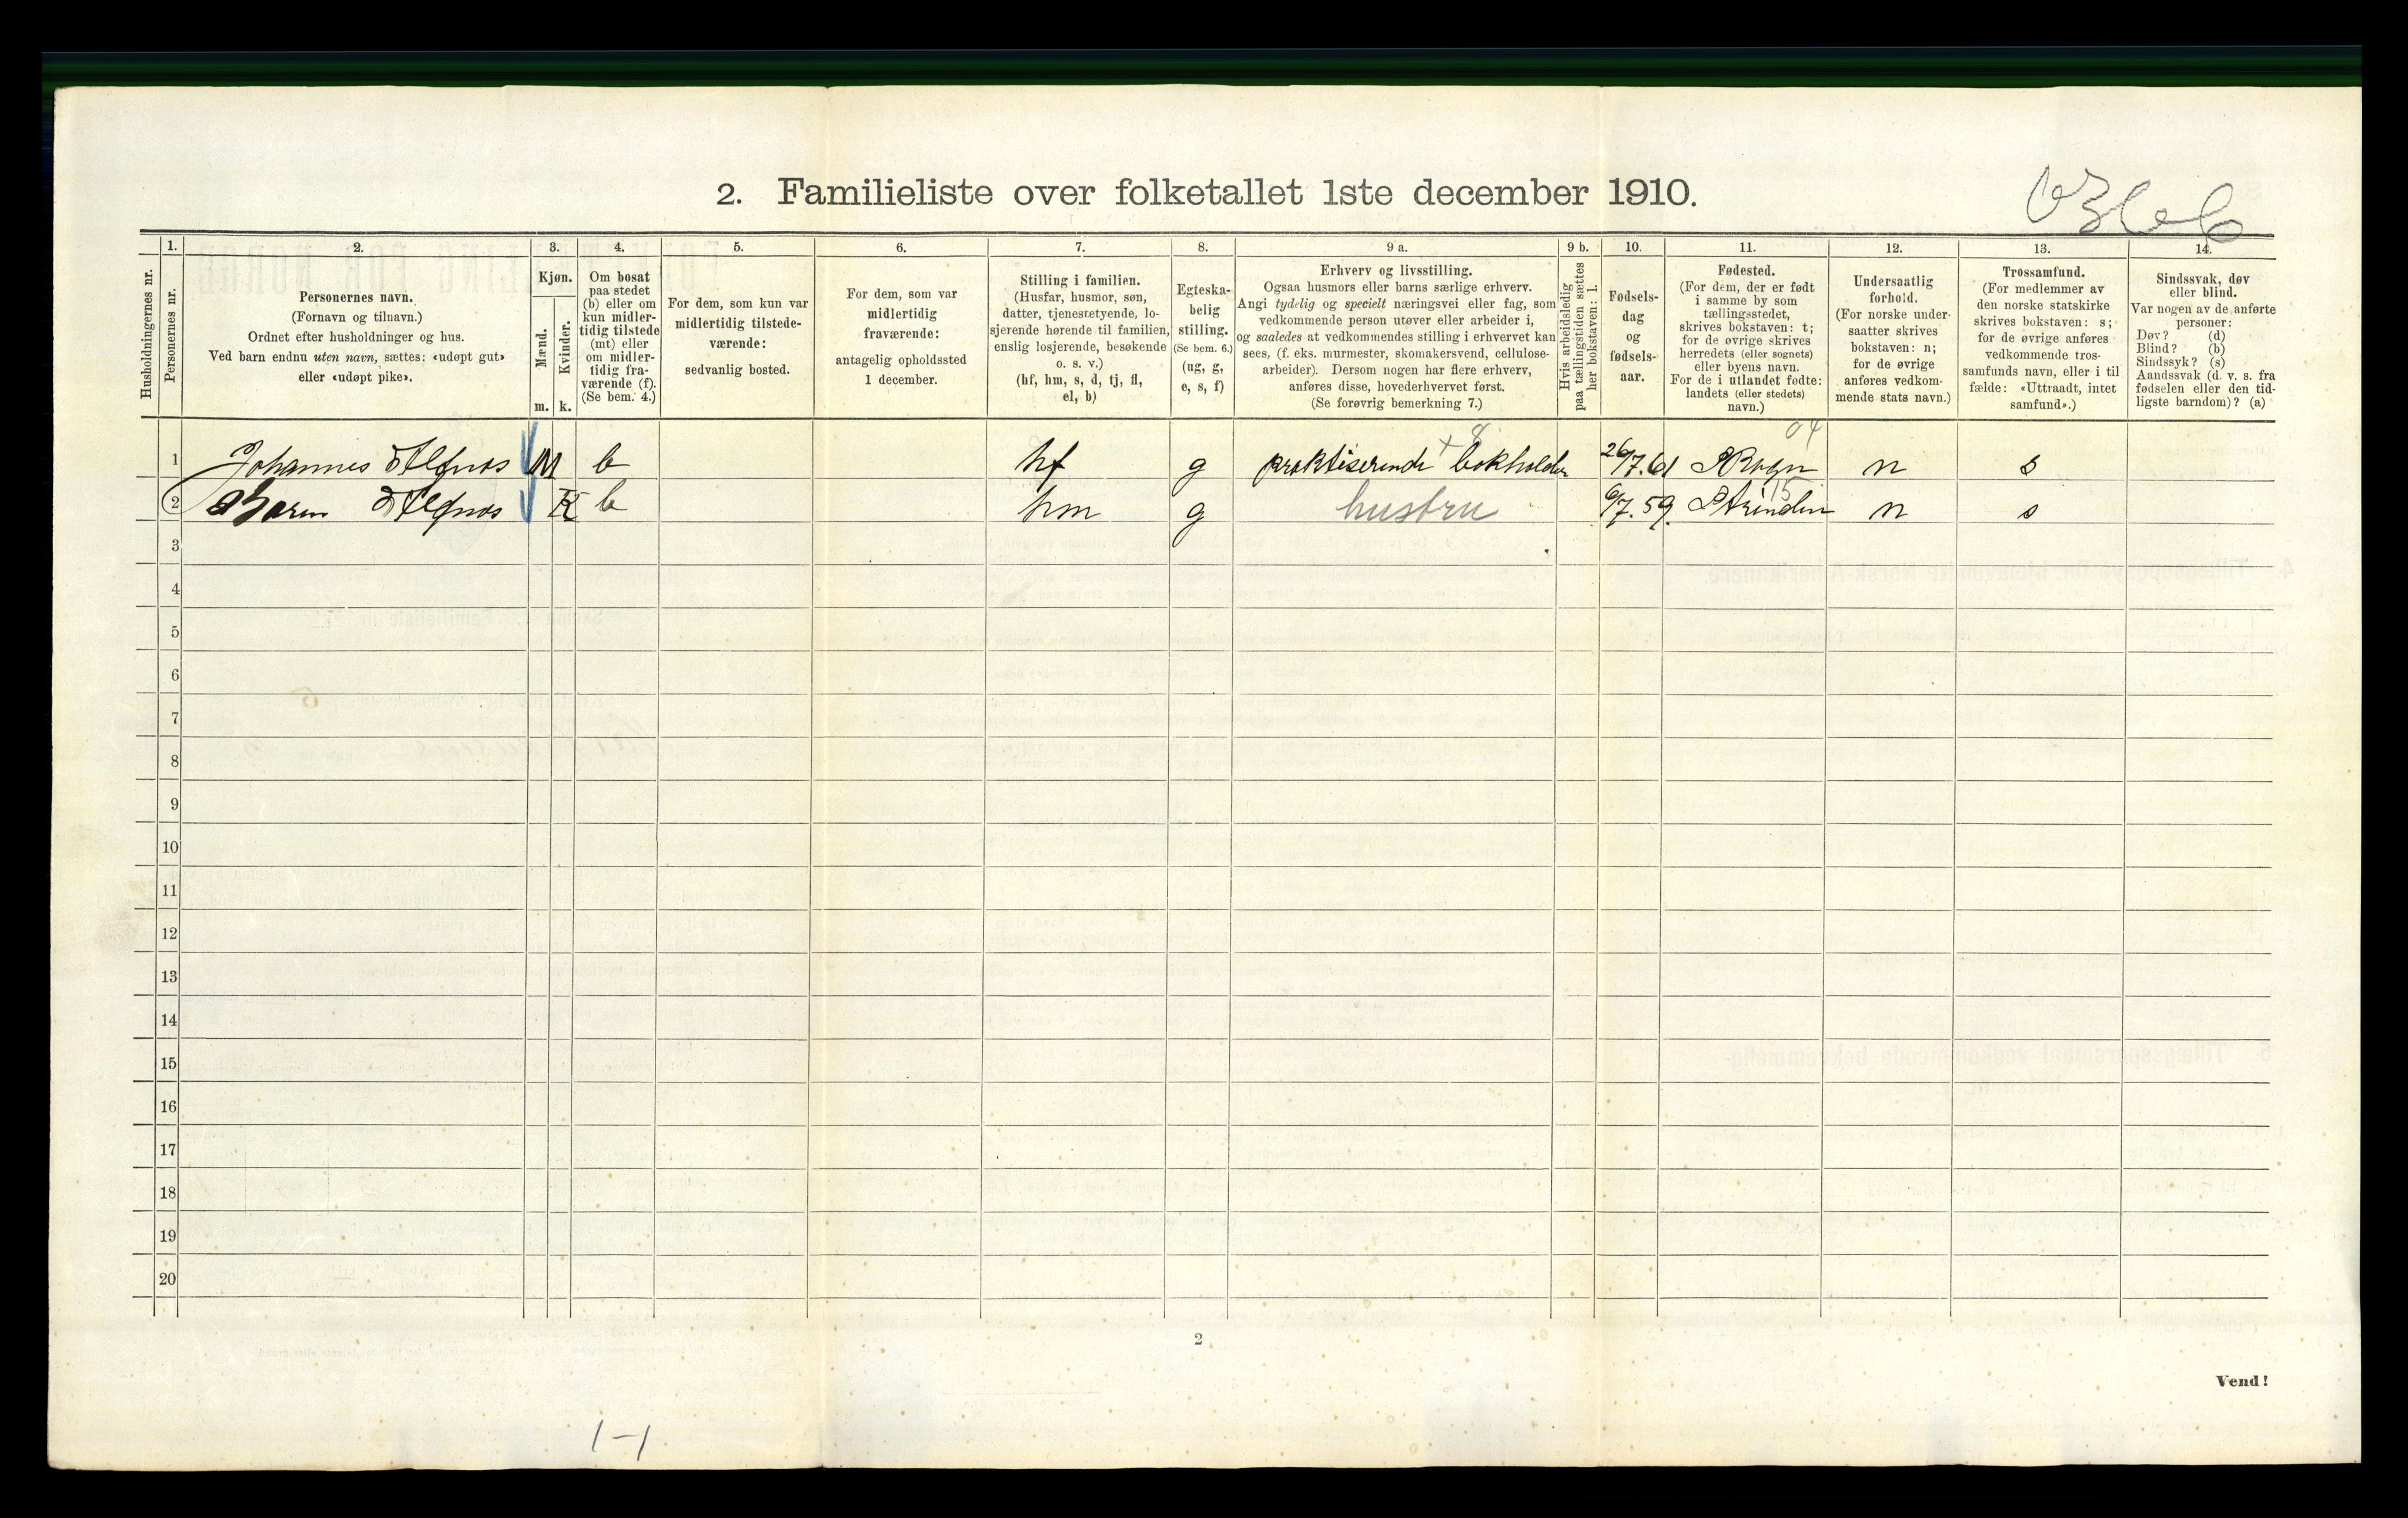 2. Familieliste over folketallet 1ste december 1910.
Husholdningernes nr.
1.
Personernes nr.
2.
Personernes navn.
(Fornavn og tilnavn.)
Ordnet efter husholdninger og hus.
Ved barn endnu uten navn, sættes: «udøpt gut»
eller «udøpt pike».
3.
Kjøn.
Mænd.
m.
Kvinder.
k.
4.
Om bosat
paa stedet
(b) eller om
kun midler-
tidig tilstede
(mt) eller
om midler-
tidig fra-
værende (f).
(Se bem. 4.)
5.
For dem, som kun var
midlertidig tilstede-
værende:
sedvanlig bosted.
6.
For dem, som var
midlertidig
fraværende:
antagelig opholdssted
1 december.
7.
Stilling i familien.
(Husfar, husmor, søn,
datter, tjenestetyende, lo-
sjerende hørende til familien,
enslig losjerende, besøkende
o. s. v.)
(hf, hm, s, d, tj, fl,
el, b)
8.
Egteska-
belig
stilling.
(Se bem. 6.)
(ug, g,
e, s, f)
9 a.
Erhverv og livsstilling.
Ogsaa husmors eller barns særlige erhverv.
Angi tydelig og specielt næringsvei eller fag, som
vedkommende person utøver eller arbeider i,
og saaledes at vedkommendes stilling i erhvervet kan
sees, (f. eks. murmester, skomakersvend, cellulose-
arbeider). Dersom nogen har flere erhverv,
anføres disse, hovederhvervet først.
(Se forøvrig bemerkning 7.)
9 b.
Hvis arbeidsledig
paa tællingstiden sættes
her bokstaven: l.
10.
Fødsels-
dag
og
fødsels-
aar.
11.
Fødested.
(For dem, der er født
i samme by som
tællingsstedet,
skrives bokstaven: t;
for de øvrige skrives
herredets (eller sognets)
eller byens navn.
For de i utlandet fødte:
landets (eller stedets)
navn.)
12.
Undersaatlig
forhold.
(For norske under-
saatter skrives
bokstaven: n;
for de øvrige
anføres vedkom-
mende stats navn.)
13.
Trossamfund.
(For medlemmer av
den norske statskirke
skrives bokstaven: s;
for de øvrige anføres
vedkommende tros-
samfunds navn, eller i til-
fælde: «Uttraadt, intet
samfund».)
14.
Sindssvak, døv
eller blind.
Var nogen av de anførte
personer:
Døv? (d)
Blind? (b)
Sindssyk? (s)
Aandssvak (d. v. s. fra
fødselen eller den tid-
ligste barndom)? (a)
1 Johannes M b hf g praktiserende bokholder 26/7.61 n s
2 K b hm g hustru 6/7.59 Strinden n s
3
4
5
6
7
8
9
10
11
12
13
14
15
16
17
18
19
20
2
Vend!
1-1